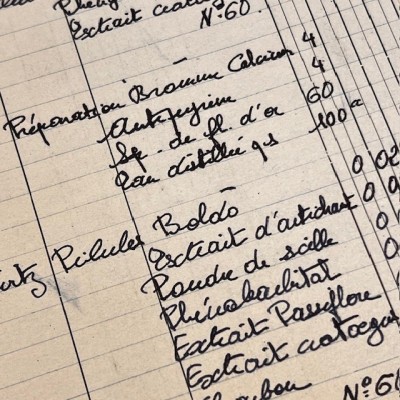 Extrait crat
N° 60.
Préparation Bromure Calcium 4
Antipyrine 4
Sp. de fl. d'or 60
Eau distillée qs 100
Pilules Boldo 0 02
Extrait d'artichaut 0 0
Poudre de scille 0
Phénobarbital 0
Extrait Passiflore
Extrait crataeg
N° 60